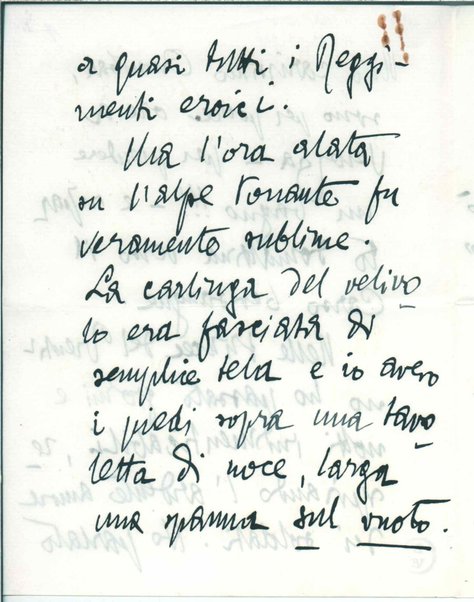 a quasi tutti i Reggi-
menti eroici.
Ma l'ora alata
su l'alpe tonante fu
veramente sublime.
La carlinga del velivo
lo era fasciata di
semplice tela e io avevo
i piedi sopra una tavo
letta di noce, larga
una spanna sul vuoto.